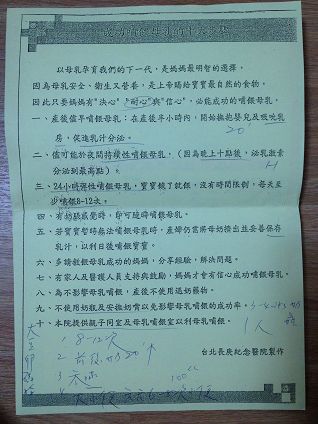 成功哺餵母乳的十大要訣
以母乳孕育我們的下一代，是媽媽最明智的選擇，
因為母乳安全、衛生又營養，是上帝賜給寶寶最自然的食物，
因此只要媽媽有"決心"、"耐心"與"信心"，必能成功的哺餵母乳。
一、產後儘早哺餵母乳：在產後半小時內，開始撫抱嬰兒及吸吮乳
房，促進乳汁分泌。
20
二、儘可能於夜間持續性哺餵母乳，（因為晚上十點後，泌乳激素
分泌到最高點）。
三、24小時彈性哺餵母乳，寶寶餓了就餵，沒有時間限制，每天至
少哺餵8-12次。
四、有奶脹感覺時，即可隨時哺餵母乳
五、若寶寶暫時無法哺餵母乳時，產婦仍當將母奶擠出並妥善保存
乳汁，以利日後餵寶寶。
六、多請教餵母乳成功的媽媽，分享經驗，解決問題。
七、有家人及醫護人員支持與鼓勵，媽媽才會有信心成功哺餵母乳
八、為不影響母乳哺餵，產後不使用退奶藥物。
九、不使用奶瓶及安撫奶嘴以免影響母乳哺餵的成功率。
十、本院提供親子同室及母乳哺餵室以利母乳哺餵。
1. 8-12次
台北長庚紀念醫院製作